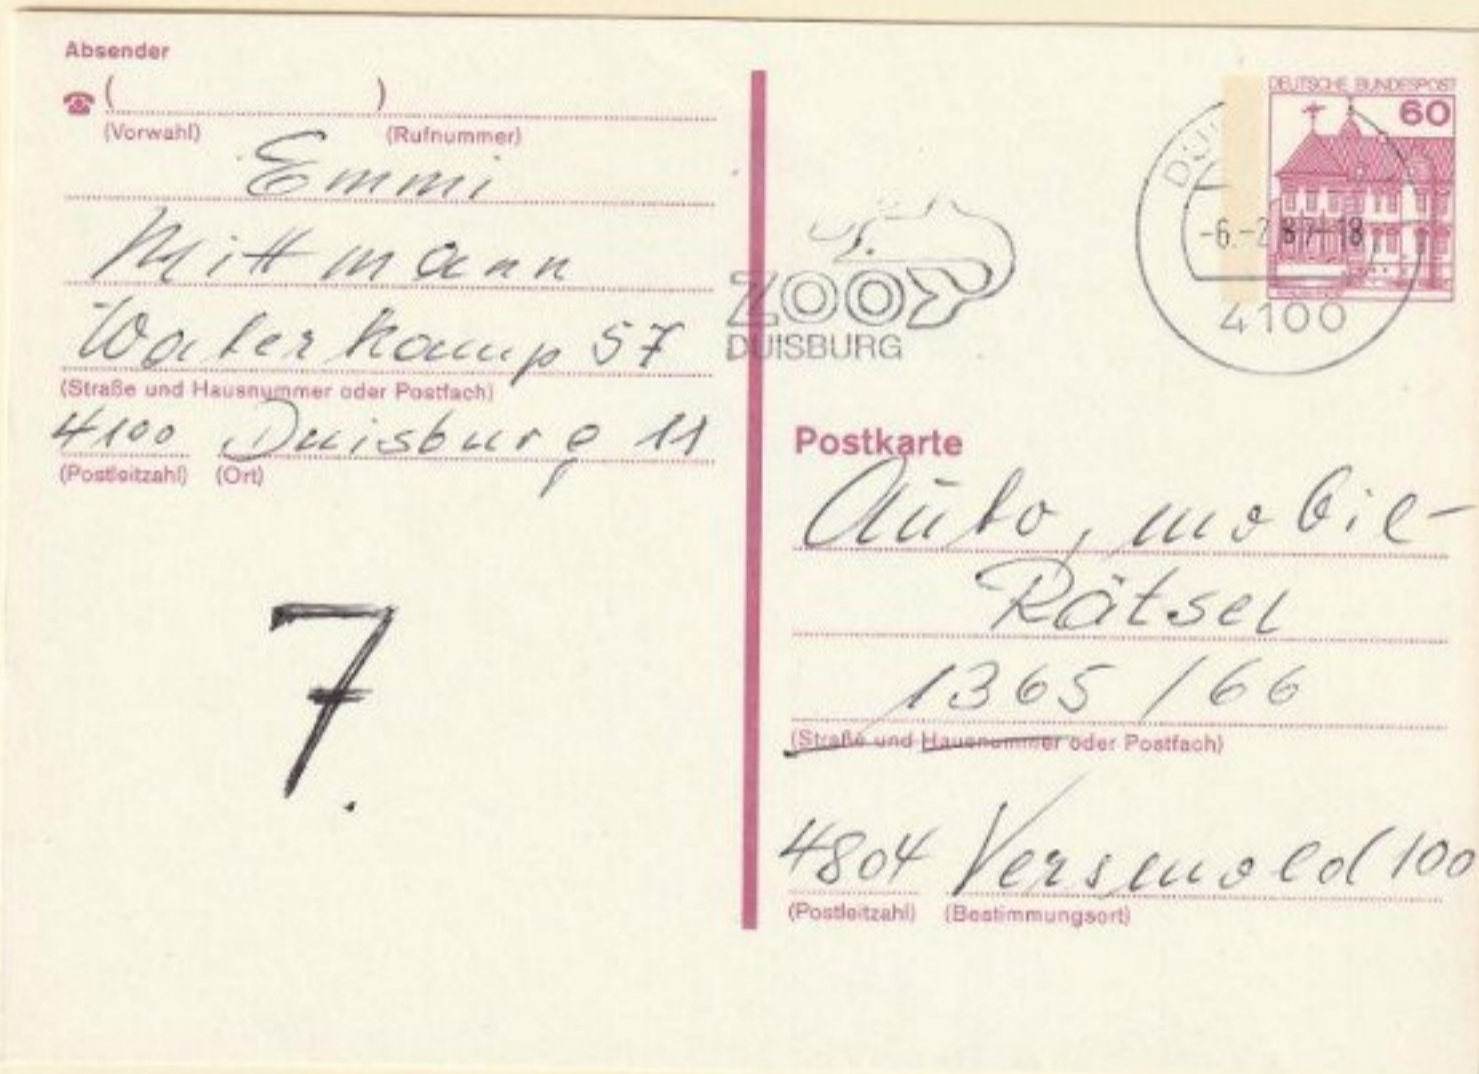 Absender
(                    )
(Vorwahl) (Rufnummer)
Emmi
Mittmann
Waterkamp 57
(Straße und Hausnummer oder Postfach)
4100 Duisburg 11
(Postleitzahl) (Ort)
7.
DEUTSCHE BUNDESPOST
60
-6.-2.87-18
4100
ZOO
DUISBURG
Postkarte
Auto, mobil-
Rätsel
1365 / 66
(Straße und Hausnummer oder Postfach)
4804 Versmold 100
(Postleitzahl) (Bestimmungsort)